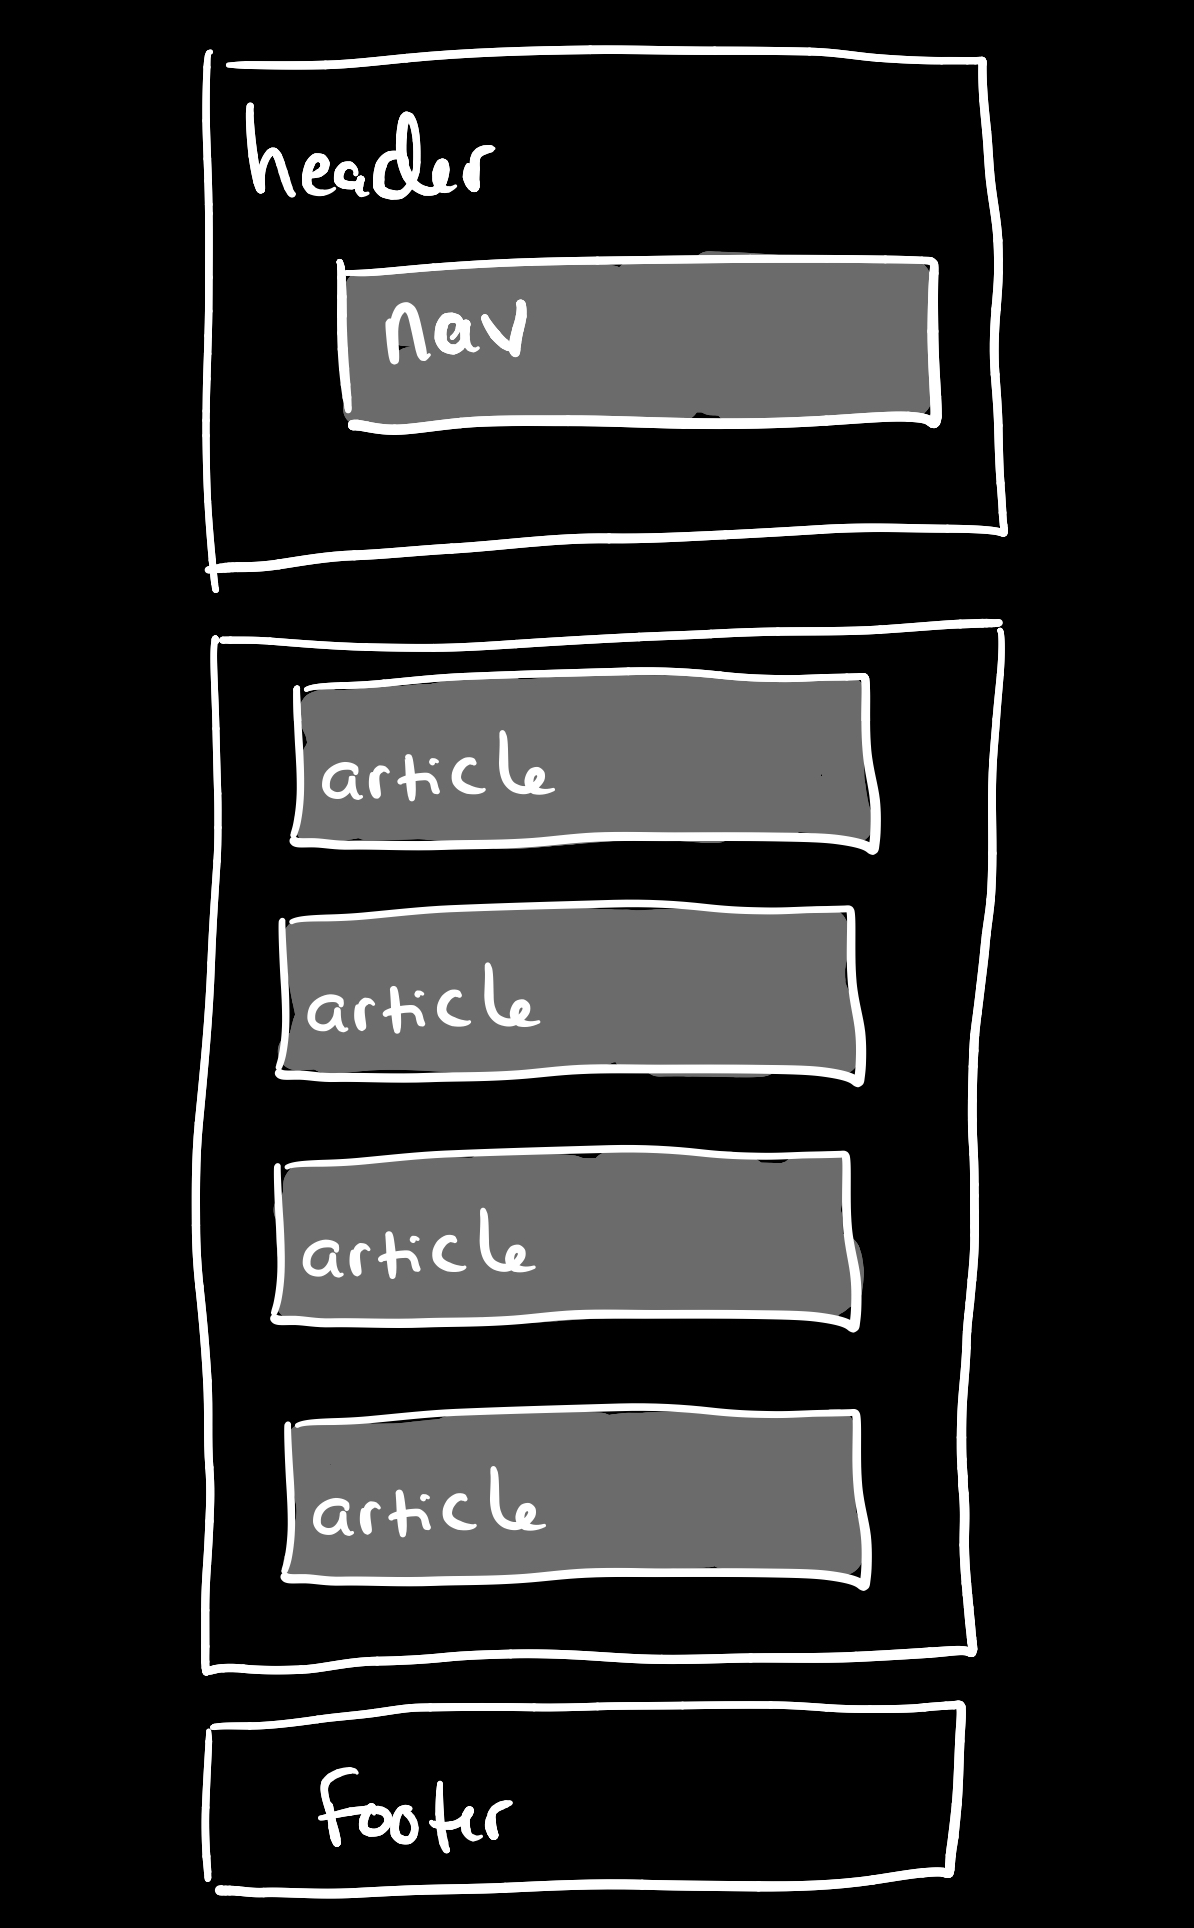 header
nav
article
article
article
article
footer